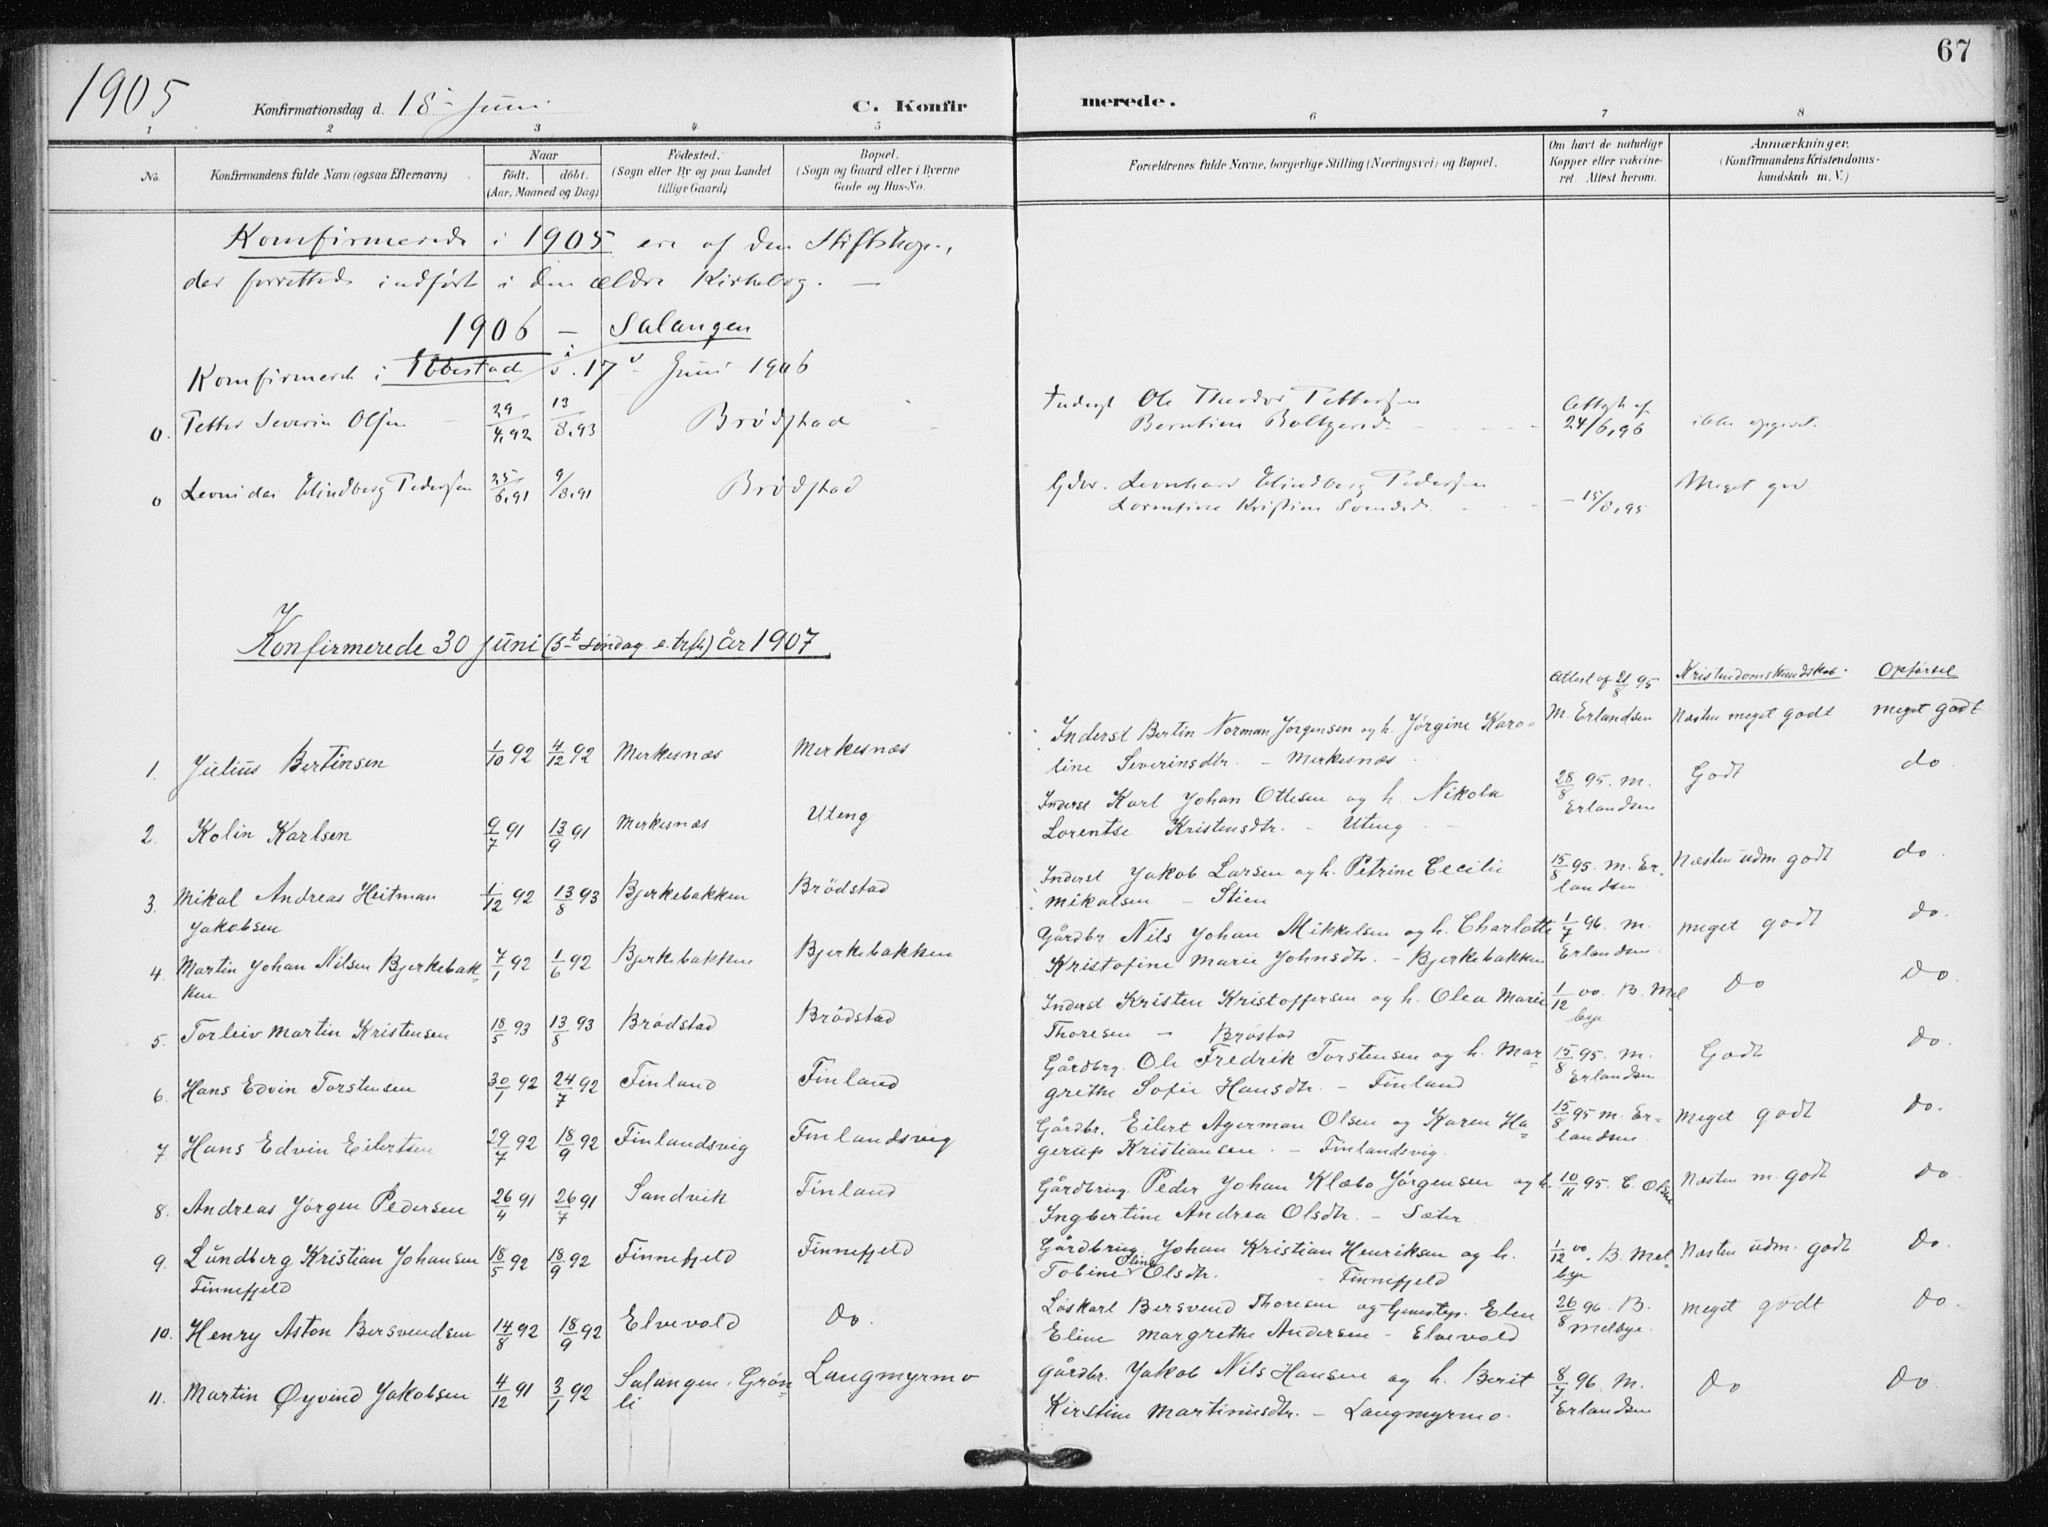 67
1905
Konfirmationsdag d. 18 Juni
C. Konfir merede.
1 2 3 4 5 6 7 8
No.
Konfirmandens fulde Navn (ogsaa Efternavn)
Naar
født. døbt.
(Aar, Maaned og Dag)
Fødested.
(Sogn eller By og paa Landet
tillige Gaard)
Bopæl.
(Sogn og Gaard eller i Byerne
Gade og Hus-No.
Forældrenes fulde Navne, borgerlige Stilling (Næringsvei) og Bopæl.
Om havt de naturlige
Kopper eller vakcine-
ret. Attest herom.
Anmærkninger.
(Konfirmandens Kristendoms-
kundskab m. V.)
Konfirmerede i 1905 ere af den
der forrettede indført i den ældre Kirkebog. —
1906 – Salangen
Konfirmered i Ibbestad 17 Juni 1906
0. Petter Severin Olsen 29/4.92 13/8.93 Brødstad Inderst Ole Theodor Pettersen Attest af ikke opgivet.
Berntine 24/6.96
0 Leonidas Elindberg Pedersen 25/6.91 9/8.91 Brødstad Leonhard Elindberg Pedersen – 15/8.95 Meget god
Lorentine Kristine
Konfirmerede 30 Juni (5t søndag e. trft) år 1907
Attest af 21/8 95 Kristendomskundskab. Opførsel
Inderst Bertin Norman Jørgensen og h. Jørgine Karo- M. Erlandsen Næsten meget godt meget godt
1. Julius Bertinsen 1/10 92 4/12 92 Merkesnæs Merkesnæs line Severinsdtr. – Merkesnæs
Inderst Karl Johan Ottesen og h. Nikola 28/8 95. M. Godt do
2. Kolin Karlsen 9/7 91 13/9 91 Merkesnæs Uteng Lorentse Kristensdtr. – Uteng Erlandsen
Inderst Jakob Larsen og h. Petrine Cecilie 15/8 95. M. Er- Næsten udm. godt do
3. Mikal Andreas Heitman 1/12 92 13/8 93 Bjerkebakken Brödstad Mikalsen – Stien landsen
Jakobsen
Gårdbr. Nils Johan Mikkelsen og h. Charlotte 1/7 96. M. meget godt do.
4. Martin Johan Nilsen Bjerkebak- 7/1 92 1/6 92 Bjerkebakken Bjerkebakken Kristofine Marie Johnsdtr. – Bjerkebakken Erlandsen
ken
Inderst Kristen Kristoffersen og h. Olea Marie 1/12 00. B. Mel Do Do.
5. Torleiv Martin Kristensen 18/5 93 13/8 93 Brödstad Brödstad Thoresen – Bröstad bye
Gårdbrg. Ole Fredrik Torstensen og h. Mar- 15/8 95. M. Godt Do.
6. Hans Edvin Torstensen 30/1 92 24/7 92 Finland Finland grethe Sofie Hansdtr. – Finland Erlandsen
Gårdbr. Eilert Agerman Olsen og Karen Ha- 15/8 95 M. Er- Meget godt do.
7 Hans Edvin Eilertsen 29/7 92 18/9 92 Finlandsvig Finlandsvig gerup Kristiansen. – Finlandsvig. landsen
Gårdbrug. Peder Johan Klæbo Jörgensen og h. 10/11 95. C. Olsen Næsten m. godt Do.
8. Andreas Jörgen Pedersen 26/4 91 26/7 91 Sandvik Finland Ingbertine Andrea Olsdtr. – Sæter
Gårdbrug. Johan Kristian Henriksen og h. 1/12 00. B. Mel- Næsten udm. godt Do.
9. Lundberg Kristian Johansen 18/5 92 18/9 92 Finnefjeld Finnefjeld Tobine Oline Olsdtr. Finnefjeld bye
Finnefjeld
Löskarl Bersvend Thoresen og Elen 26/8 96. B. meget godt Do.
10. Henry Aston Bersvendsen 14/8 92 18/9 92 Elvevold Do. Eline Margrethe Andersen – Elvevold Melbye.
Gårdbr. Jakob Nils Hansen og h. Berit 8/7 96. M. Do Do.
11. Martin Øyvind Jakobsen 4/12 91 3/1 92 Salangen, Grön- Langmyrmo Kirstine Martinusdtr. – Langmyrmo. Erlandsen
li